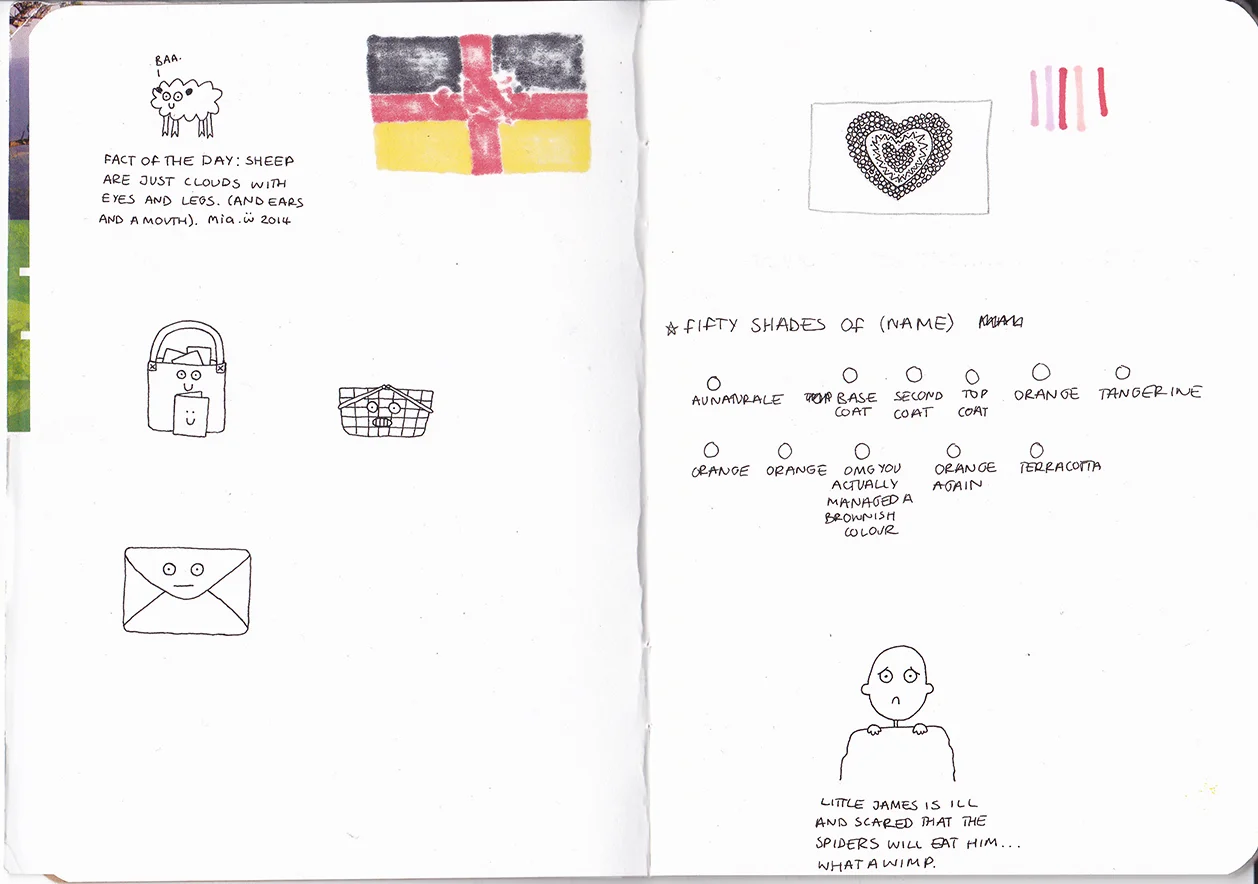 BAA.
FACT OF THE DAY: SHEEP
ARE JUST CLOUDS WITH
EYES AND LEGS. (AND EARS
AND A MOUTH). Mia. 2014
☆ FIFTY SHADES OF (NAME)
AU NATURALE
BASE
COAT
SECOND
COAT
TOP
COAT
ORANGE
TANGERINE
ORANGE
ORANGE
OMG YOU
ACTUALLY
MANAGED A
BROWNISH
COLOUR
ORANGE
AGAIN
TERRACOTTA
LITTLE JAMES IS ILL
AND SCARED THAT THE
SPIDERS WILL EAT HIM...
WHAT A WIMP.